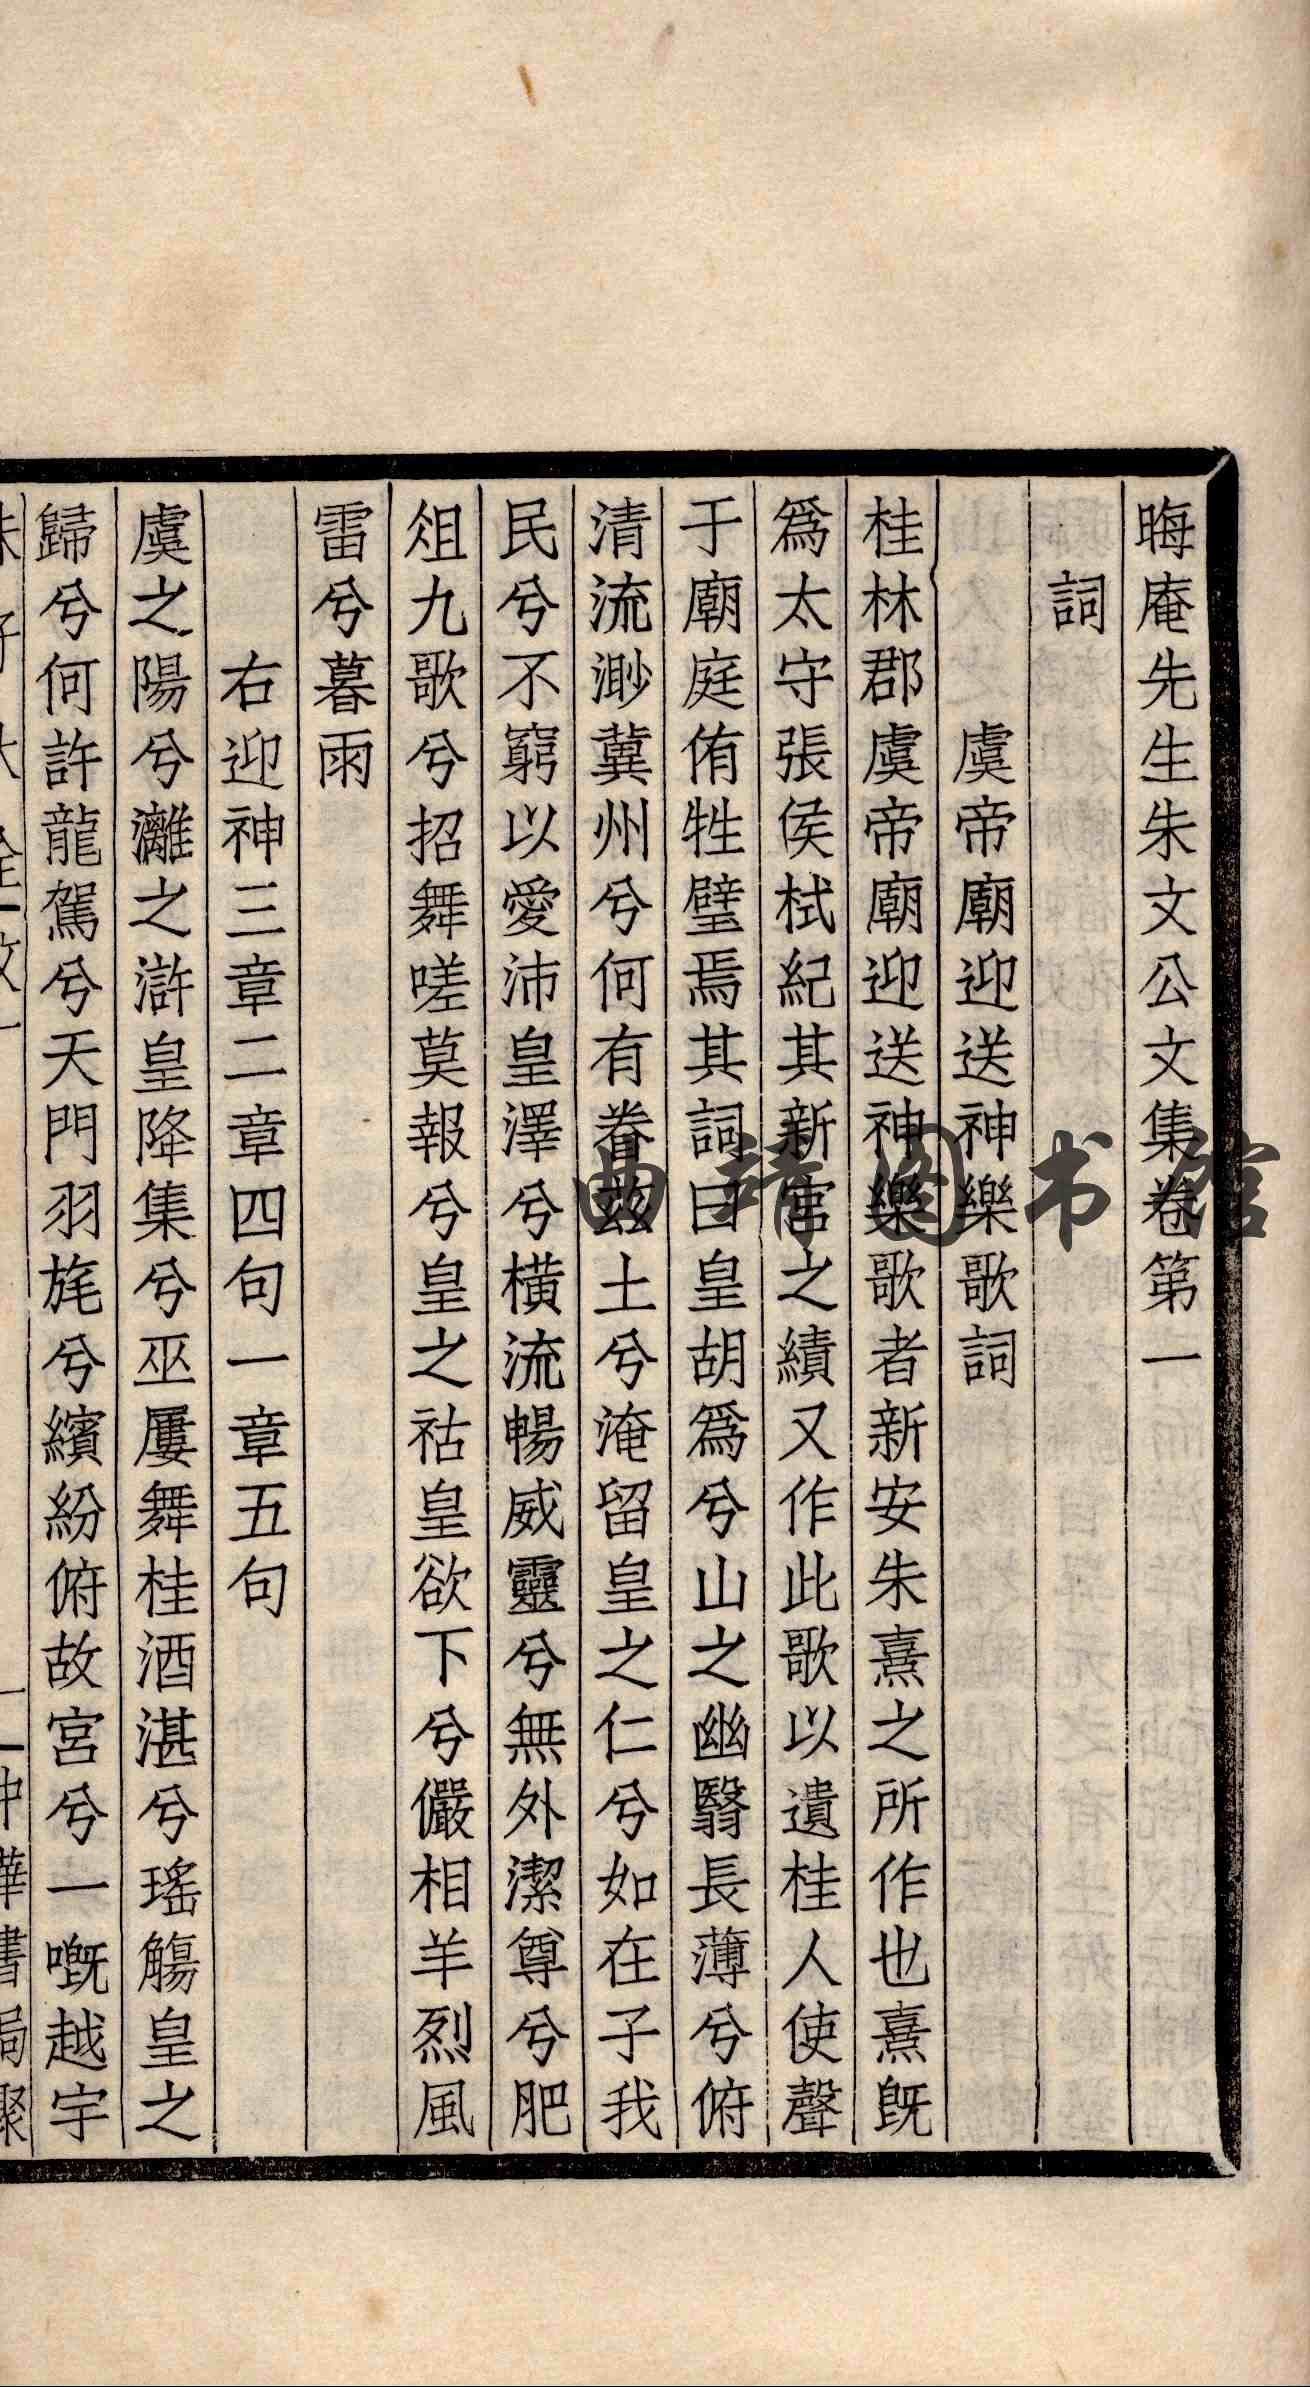 晦庵先生朱文公文集卷第一
詞
虞帝廟迎送神樂歌詞
桂林郡虞帝廟迎送神樂歌者新安朱熹之所作也熹旣
爲太守張侯栻紀其新宮之績又作此歌以遺桂人使聲
于廟庭侑牲璧焉其詞曰皇胡爲兮山之幽翳長薄兮俯
清流渺冀州兮何有眷茲土兮淹留皇之仁兮如在子我
民兮不窮以愛沛皇澤兮橫流暢威靈兮無外潔尊兮肥
俎九歌兮招舞嗟莫報兮皇之祜皇欲下兮儼相羊烈風
雷兮暮雨
右迎神三章二章四句一章五句
虞之陽兮灕之滸皇降集兮巫屢舞桂酒湛兮瑤觴皇之
歸兮何許龍駕兮天門羽旄兮繽紛俯故宮兮一嘅越宇
朱子大全 文一
一 中華書局聚
曲靖图书馆